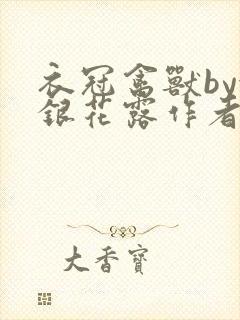 衣冠禽獸by
銀花露作者
大香寶